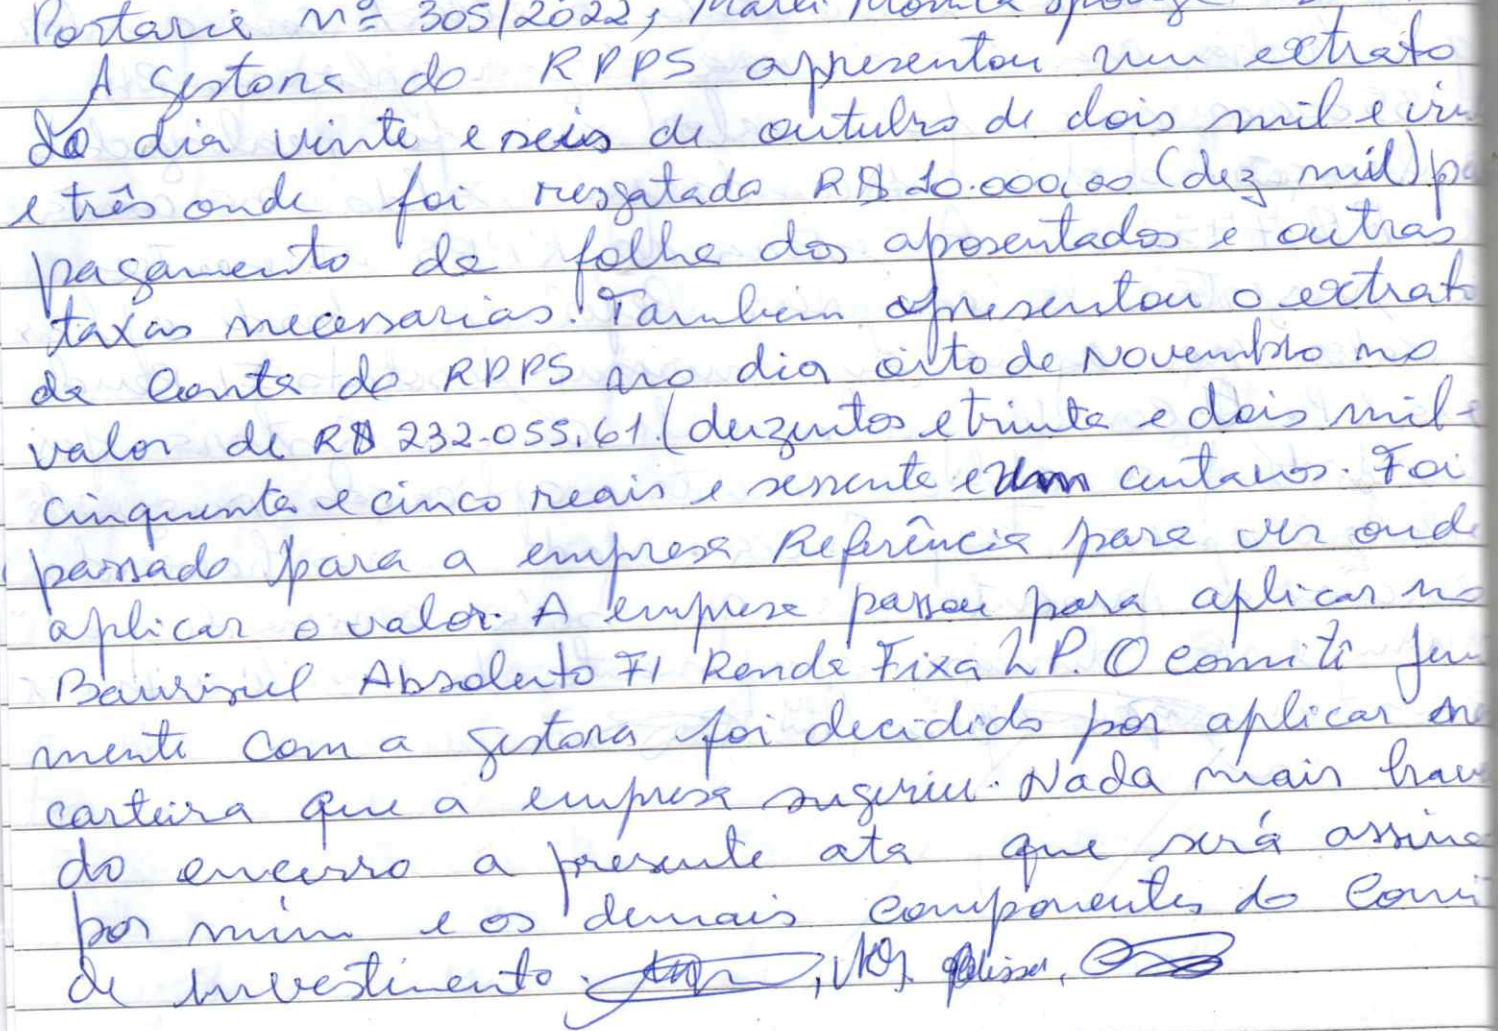 Portaria nº 305/2022, Marli Mônica
A gestora do RPPS apresentou um extrato
do dia vinte e seis de outubro de dois mil e vin
e três onde foi resgatado R$ 10.000,00 (dez mil) pa
pagamento da folha dos aposentados e outras
taxas necessarias. Também apresentou o extrato
da Conta do RPPS no dia oito de Novembro no
valor de R$ 232.055,61 (duzentos e trinta e dois mil e
cinquenta e cinco reais e sessenta e um centavos. Foi
passado para a empresa Referência para ver onde
aplicar o valor. A empresa passou para aplicar no
Banrisul Absoluto FI Renda Fixa LP. O comitê jun
mente com a gestora foi decidido por aplicar na
carteira que a empresa sugeriu. Nada mais haven
do encerro a presente ata que será assina
por mim e os demais componentes do Comi
de Investimento.